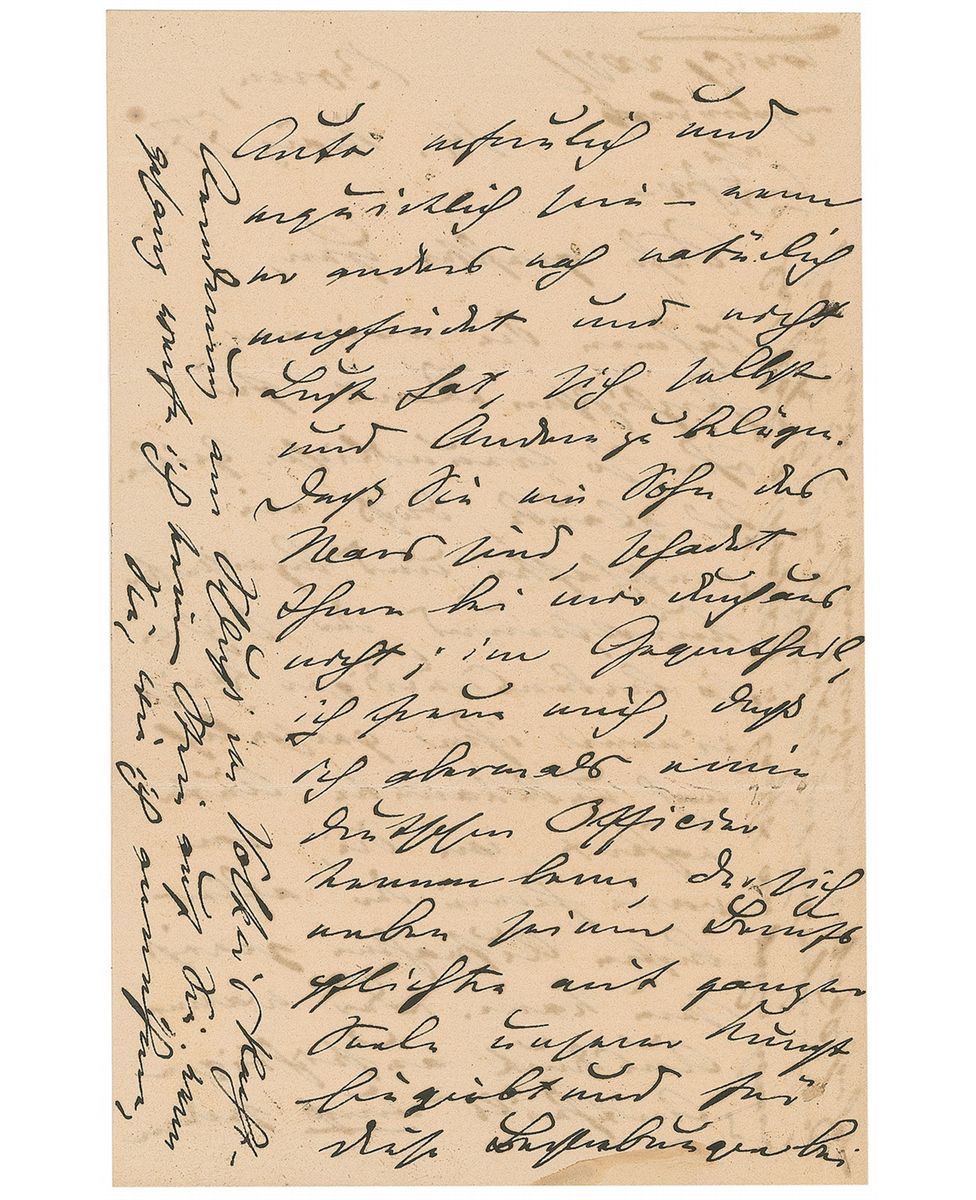 Autor erfreulich und
erquicklich sein – wenn
er anders noch natürlich
empfindet und nicht
Lust hat, sich selbst
und Andere zu belügen.
Daß Sie ein Sohn des
Mars sind, schadet
Ihnen bei mir durchaus
nicht, im Gegentheil,
ich freue mich, daß
ich abermals einen
deutschen Officier
kennen lerne, der sich
neben seinen Berufs
pflichten mit ganzer
Seele unserer Kunst
hingiebt und für
diese Bestrebungen bei
volle Kraft-
gebung werfe ich keinen Stein auf
Sie, wie ich annehme,